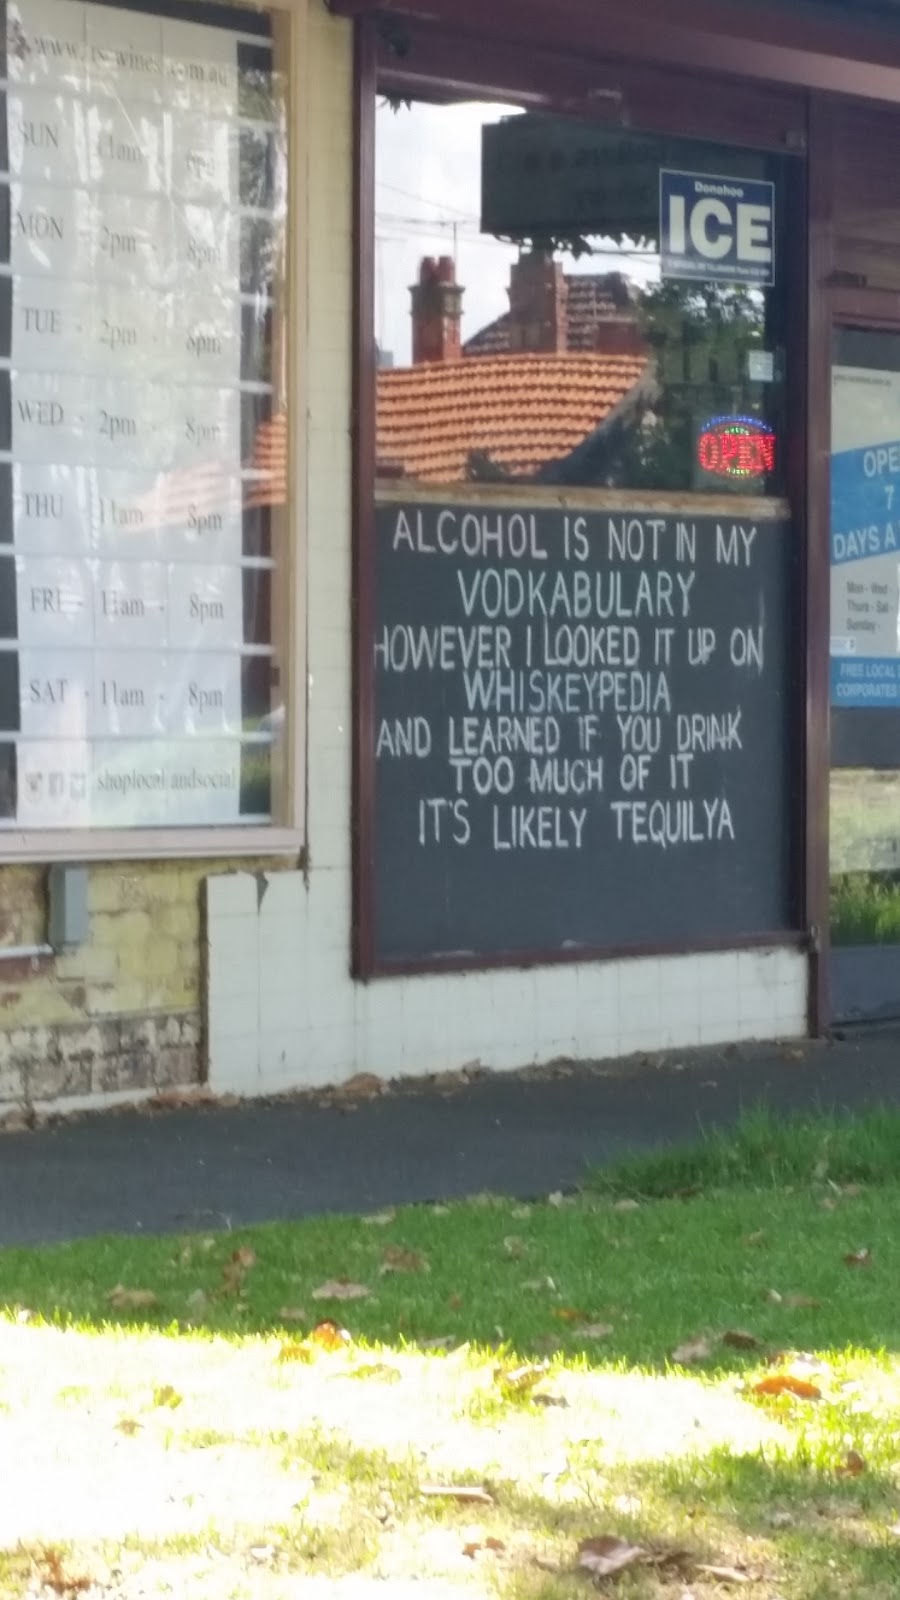 SUN 11am
MON - 2pm - 8pm
TUE - 2pm - 8pm
WED - 2pm - 8pm
THU 11am 8pm
FRI - 11am - 8pm
SAT - 11am - 8pm
shoplocal andsocial
Donahoo
ICE
OPEN
ALCOHOL IS NOT IN MY
VODKABULARY
HOWEVER I LOOKED IT UP ON
WHISKEYPEDIA
AND LEARNED IF YOU DRINK
TOO MUCH OF IT
IT'S LIKELY TEQUILYA
OPE
7
DAYS A
Mon - Wed -
Thurs - Sat -
Sunday -
FREE LOCAL
CORPORATES